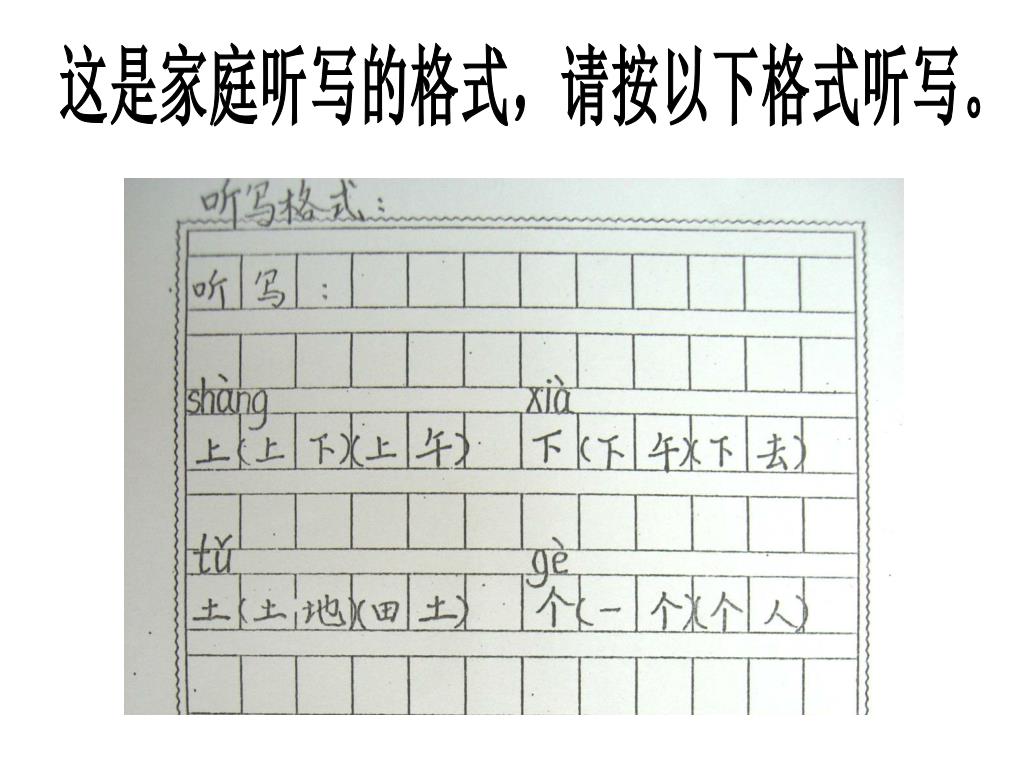 这是家庭听写的格式，请按以下格式听写。
听写格式：
听写：
shàng xià
上(上下)(上午) 下(下午)(下去)
tǔ gè
土(土地)(田土) 个(一个)(个人)